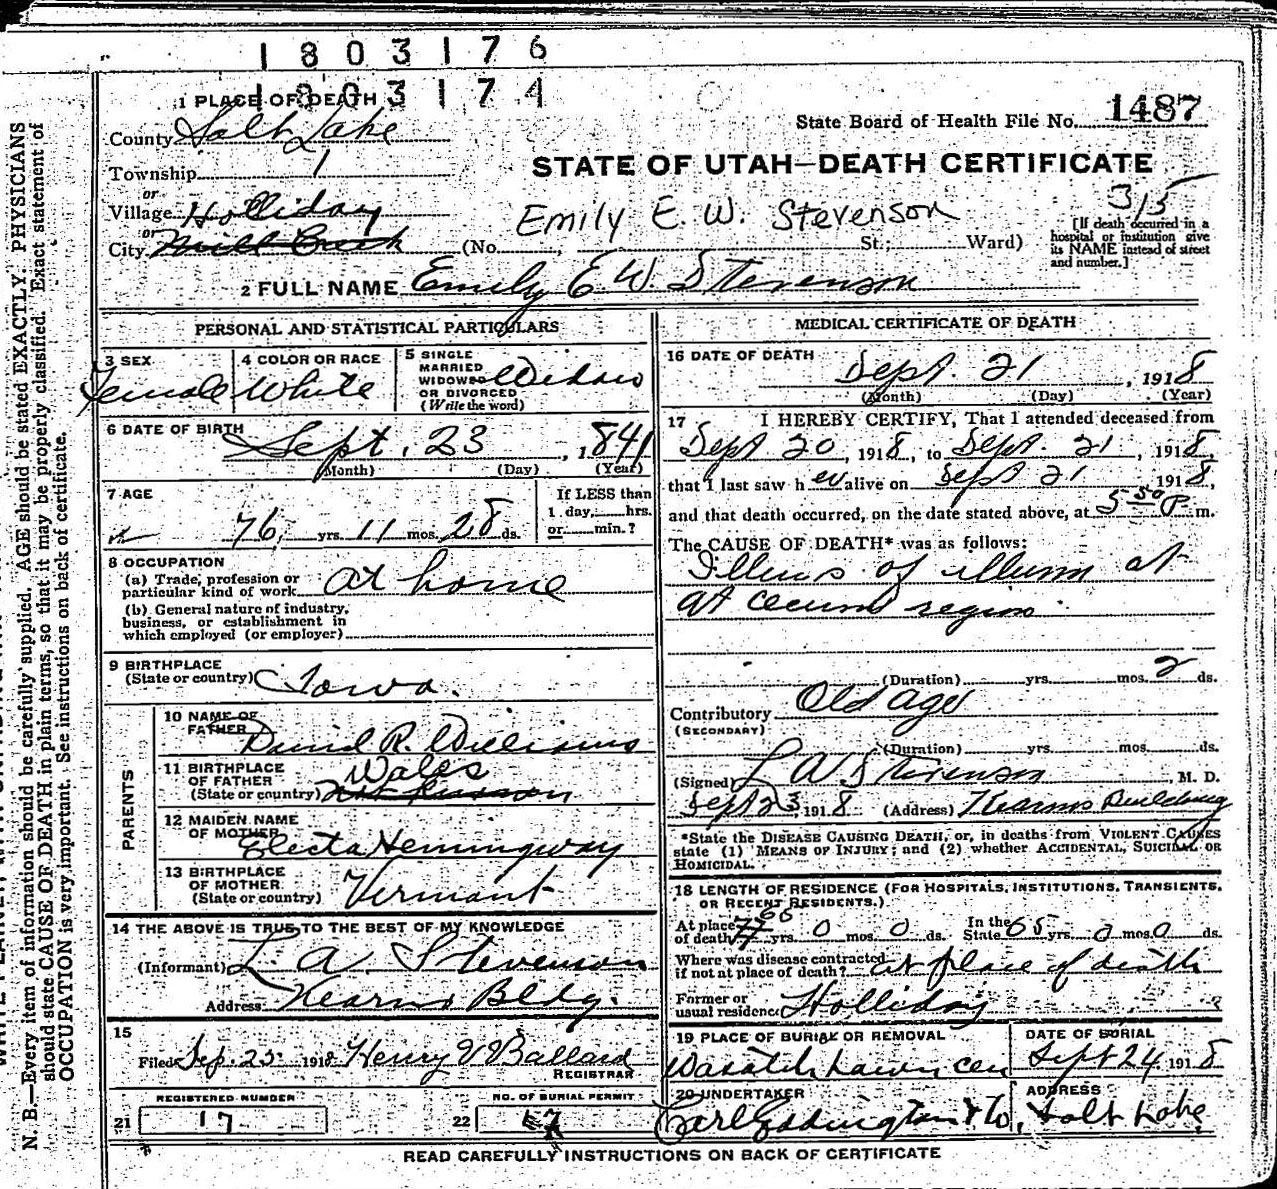 1803176
1803174
1 PLACE OF DEATH
County Salt Lake
Township 1
or
Village Holliday
or
City Mill Creek
State Board of Health File No. 1487
STATE OF UTAH—DEATH CERTIFICATE
315
Emily E. W. Stevenson
(No. St.; Ward)
[If death occurred in a
hospital or institution give
its NAME instead of street
and number.]
2 FULL NAME Emily E W. Stevenson
PERSONAL AND STATISTICAL PARTICULARS
3 SEX
Female
4 COLOR OR RACE
White
5 SINGLE
MARRIED
WIDOWED Widow
OR DIVORCED
(Write the word)
6 DATE OF BIRTH
Sept. 23, 1841
(Month) (Day) (Year)
7 AGE
76 yrs. 11 mos. 28 ds.
If LESS than
1 day, hrs.
or min.?
8 OCCUPATION
(a) Trade, profession or
particular kind of work at home
(b) General nature of industry,
business, or establishment in
which employed (or employer)
9 BIRTHPLACE
(State or country) Iowa.
PARENTS
10 NAME OF
FATHER
David R. Williams
11 BIRTHPLACE
OF FATHER
(State or country)
Wales
12 MAIDEN NAME
OF MOTHER
Electa Hemingway
13 BIRTHPLACE
OF MOTHER
(State or country) Vermont
14 THE ABOVE IS TRUE TO THE BEST OF MY KNOWLEDGE
(Informant) L. A. Stevenson
Address Kearns Bldg.
15
Filed Sep. 25 1918 Henry V Ballard
REGISTRAR
REGISTERED NUMBER
21 17
NO. OF BURIAL PERMIT
22
MEDICAL CERTIFICATE OF DEATH
16 DATE OF DEATH
Sept. 21, 1918
(Month) (Day) (Year)
17 I HEREBY CERTIFY, That I attended deceased from
Sept 20, 1918, to Sept. 21, 1918,
that I last saw h er alive on Sept 21 1918,
and that death occurred, on the date stated above, at 5 50 P m.
The CAUSE OF DEATH* was as follows:
Illeus of illium at
at cecum region
(Duration) yrs. mos. 2 ds.
Contributory Old age
(SECONDARY)
(Duration) yrs. mos. ds.
(Signed) L A Stevenson, M. D.
Sept 23, 1918 (Address) Kearns Building
*State the DISEASE CAUSING DEATH, or, in deaths from VIOLENT CAUSES
state (1) MEANS OF INJURY; and (2) whether ACCIDENTAL, SUICIDAL OR
HOMICIDAL.
18 LENGTH OF RESIDENCE (FOR HOSPITALS, INSTITUTIONS, TRANSIENTS,
OR RECENT RESIDENTS.)
At place
of death yrs. 0 mos. 0 ds. In the
State 65 yrs. 0 mos. 0 ds.
Where was disease contracted
if not at place of death? at place of death
Former or
usual residence Holliday
19 PLACE OF BURIAL OR REMOVAL
Wasatch Lawn Cem
DATE OF BURIAL
Sept 24 1918
20 UNDERTAKER
ADDRESS
Salt Lake
READ CAREFULLY INSTRUCTIONS ON BACK OF CERTIFICATE
N. B.—Every item of information should be carefully supplied. AGE should be stated EXACTLY. PHYSICIANS
should state CAUSE OF DEATH in plain terms, so that it may be properly classified. Exact statement of
OCCUPATION is very important. See instructions on back of certificate.